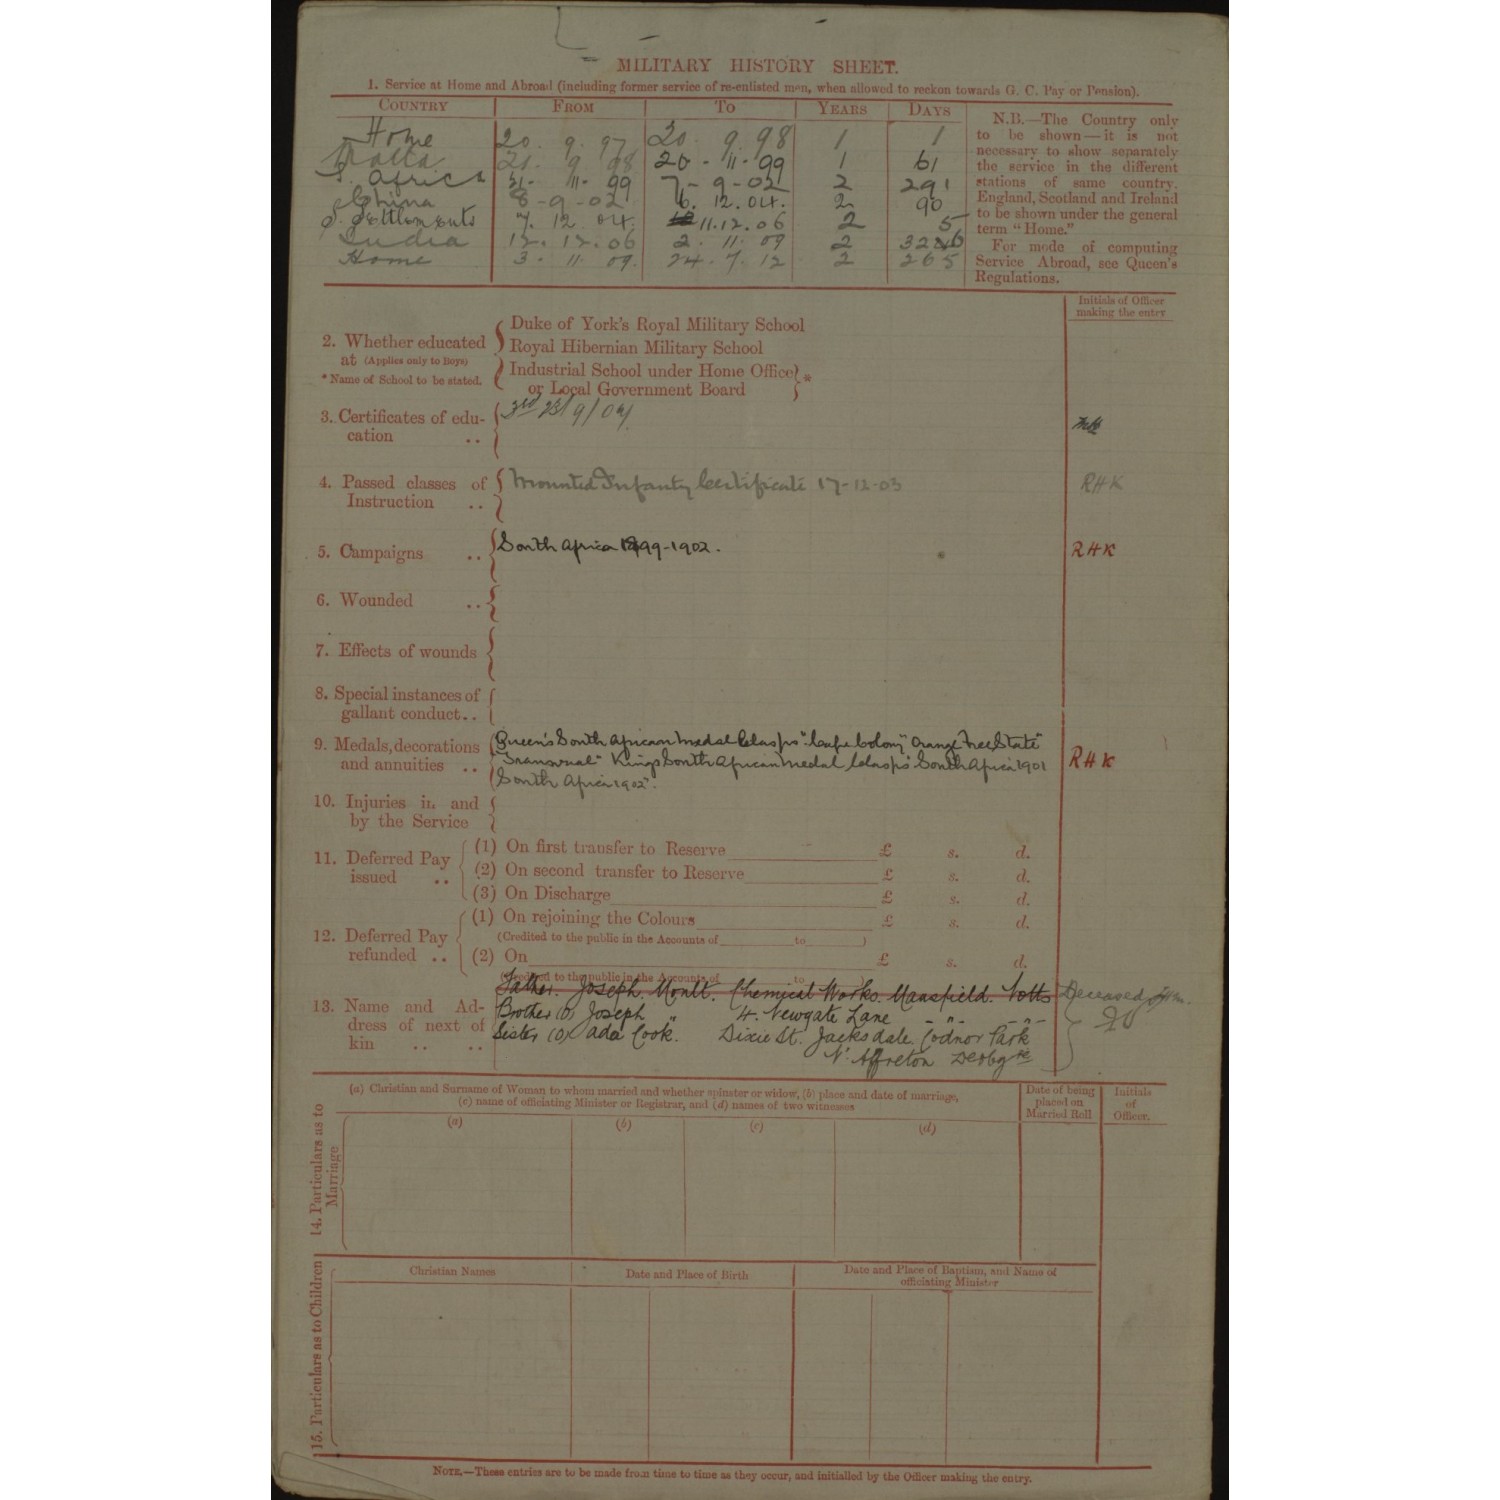 MILITARY HISTORY SHEET.
1. Service at Home and Abroad (including former service of re-enlisted men, when allowed to reckon towards G. C. Pay or Pension).
COUNTRY FROM TO YEARS DAYS
Home 20. 9. 97 20. 9. 98 1 1
Malta 21. 9. 98 20-11-99 1 61
S. Africa 21-11-99 7-9-02 2 291
China 8-9-02 6. 12. 04. 2 90
S. Settlements 7. 12. 04. 11.12.06 2 5
India 12. 12. 06 2. 11. 09 2 326
Home 3. 11. 09. 24. 7. 12 2 265
N.B.—The Country only
to be shown—it is not
necessary to show separately
the service in the different
stations of same country.
England, Scotland and Ireland
to be shown under the general
term "Home."
For mode of computing
Service Abroad, see Queen's
Regulations.
Initials of Officer
making the entry
2. Whether educated
at (Applies only to Boys)
* Name of School to be stated.
Duke of York's Royal Military School
Royal Hibernian Military School
Industrial School under Home Office
or Local Government Board *
3. Certificates of edu-
cation ..
3rd 23/9/04
4. Passed classes of
Instruction ..
Mounted Infantry Certificate 17-12-03 RHK
5. Campaigns .. South Africa 1899-1902. RHK
6. Wounded ..
7. Effects of wounds
8. Special instances of
gallant conduct..
9. Medals, decorations
and annuities ..
Queen's South African Medal Clasps "Cape Colony" Orange Free State"
"Transvaal" Kings South African Medal Clasps "South Africa 1901 RHK
South Africa 1902".
10. Injuries in and
by the Service
11. Deferred Pay
issued ..
(1) On first transfer to Reserve £ s. d.
(2) On second transfer to Reserve £ s. d.
(3) On Discharge £ s. d.
12. Deferred Pay
refunded ..
(1) On rejoining the Colours £ s. d.
(Credited to the public in the Accounts of to )
(2) On £ s. d.
(Credited to the public in the Accounts of to
13. Name and Ad-
dress of next of
kin .. ..
Father. Joseph Moult. Chemical Works. Mansfield. Notts Deceased
Brother (o) Joseph " 4. Newgate Lane -"- -"-
Sister (o) Ada Cook. Dixie St. Jacksdale. Codnor Park
Nr Alfreton Derbyre
14. Particulars as to
Marriage
(a) Christian and Surname of Woman to whom married and whether spinster or widow, (b) place and date of marriage,
(c) name of officiating Minister or Registrar, and (d) names of two witnesses
Date of being
placed on
Married Roll
Initials
of
Officer.
(a) (b) (c) (d)
15. Particulars as to Children
Christian Names
Date and Place of Birth
Date and Place of Baptism, and Name of
officiating Minister
NOTE.—These entries are to be made from time to time as they occur, and initialled by the Officer making the entry.